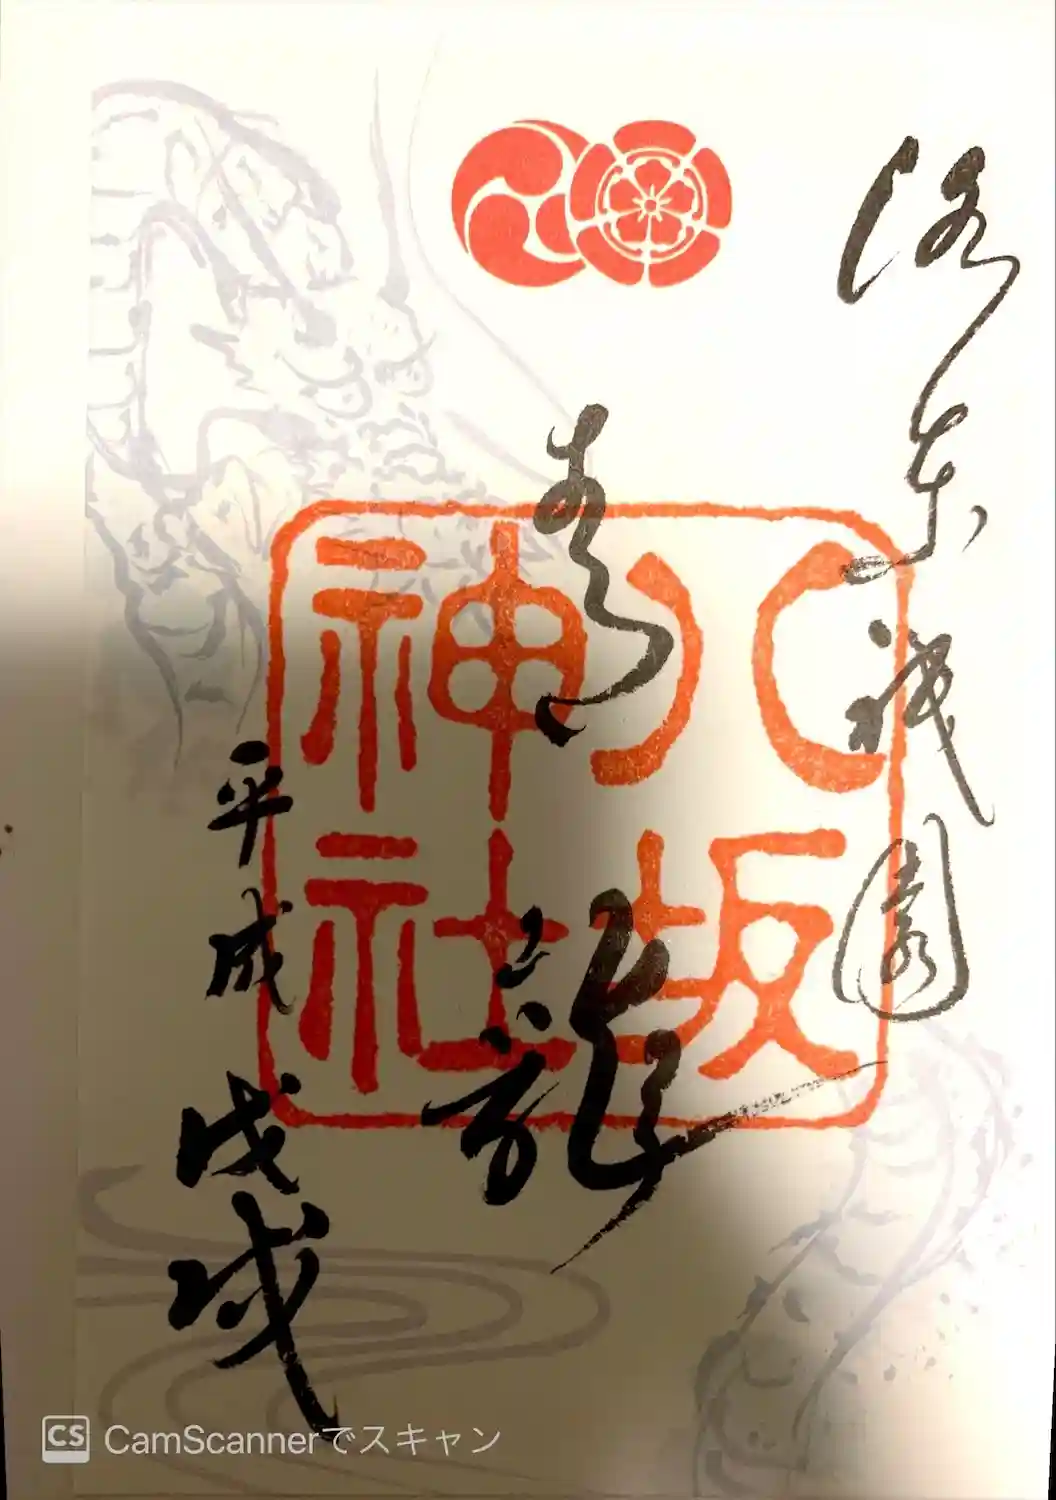 洛東祇園
青龍
八坂
神社
平成戊戌
CamScannerでスキャン